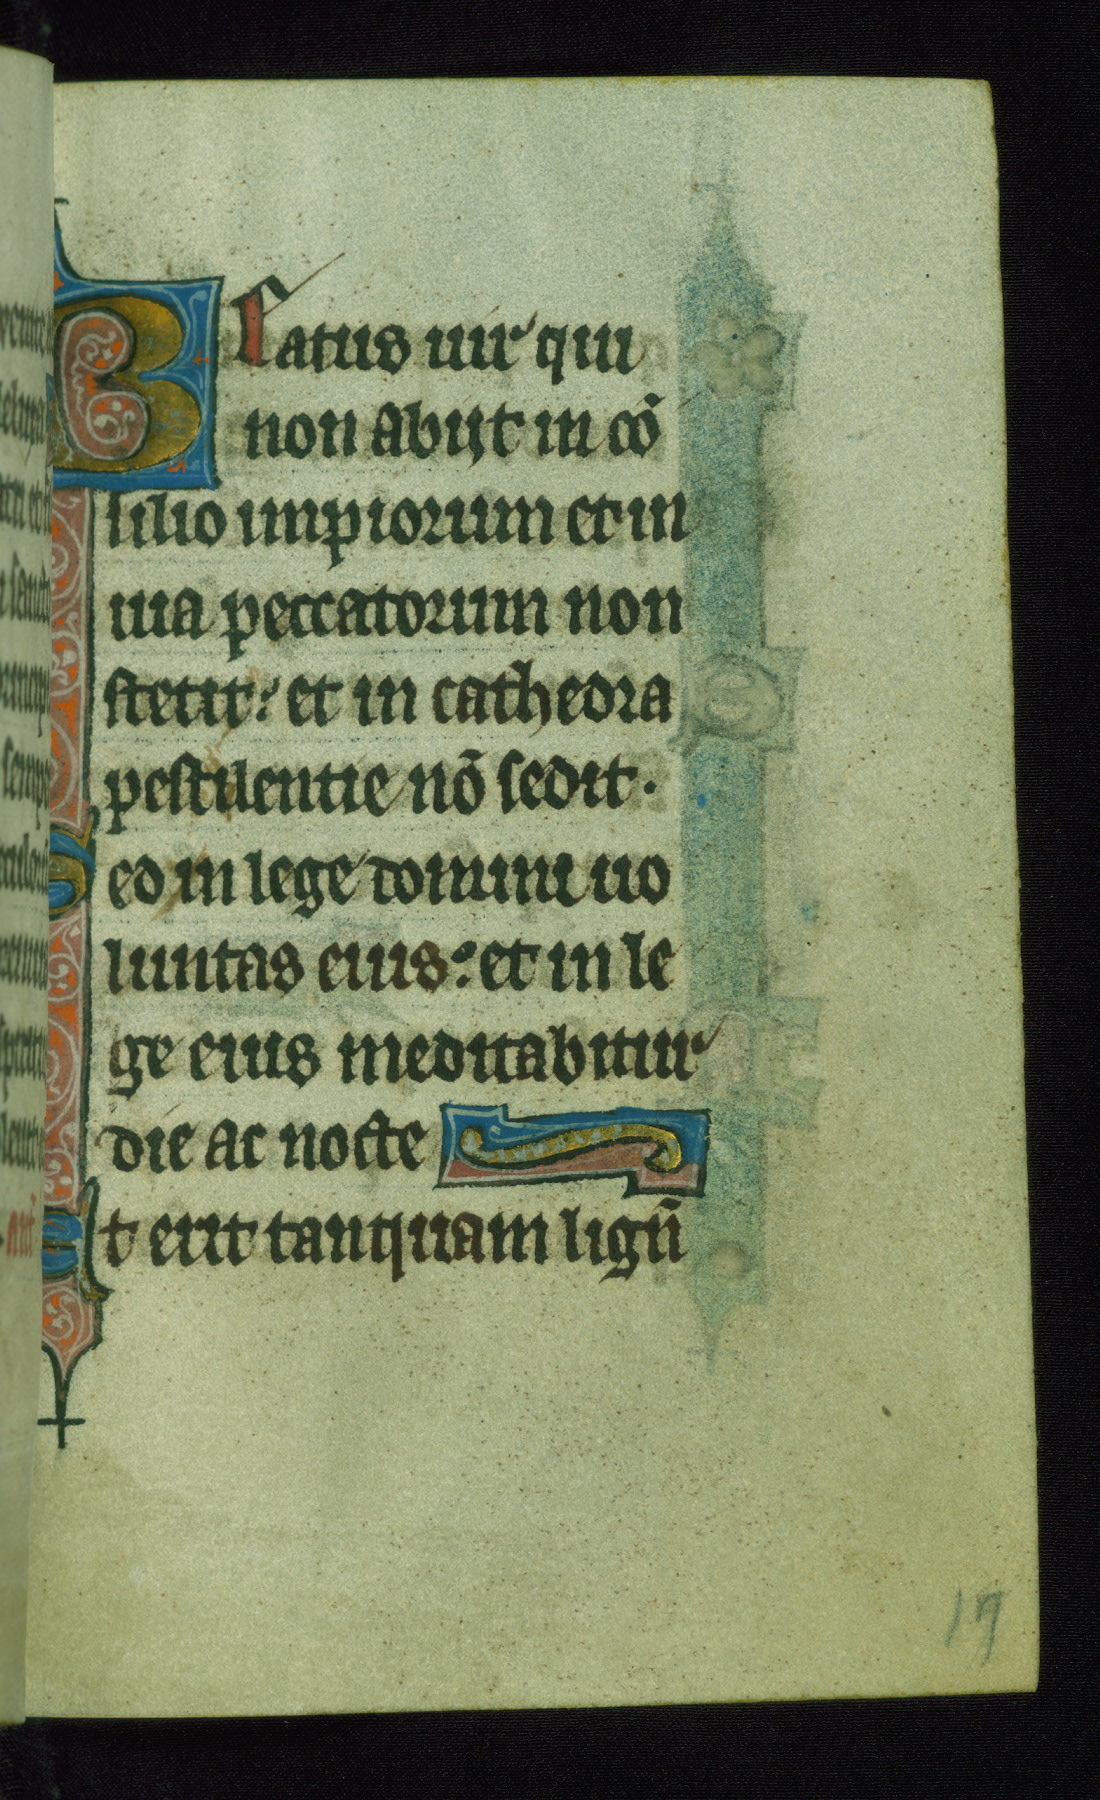 Beatus uir qui
non abijt in cō
silio impiorum et in
uia peccatorum non
stetit: et in cathedra
pestilentie nō sedit.
Sed in lege domini uo
luntas eius: et in le
ge eius meditabitur
die ac nocte
Et erit tanquam lignū
17